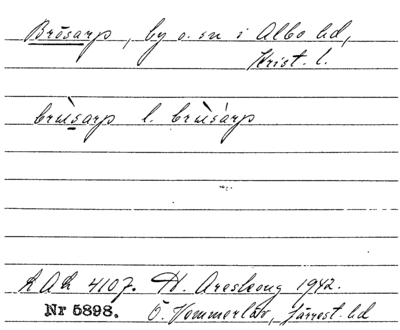 Brösarp, by o. sn i Albo hd,
Krist. l.
brùsarp l. brùsàrp
LAL 4107. H. Areskoug 1942.
Nr 5898. Ö. Hommerlöv, Järrest. hd